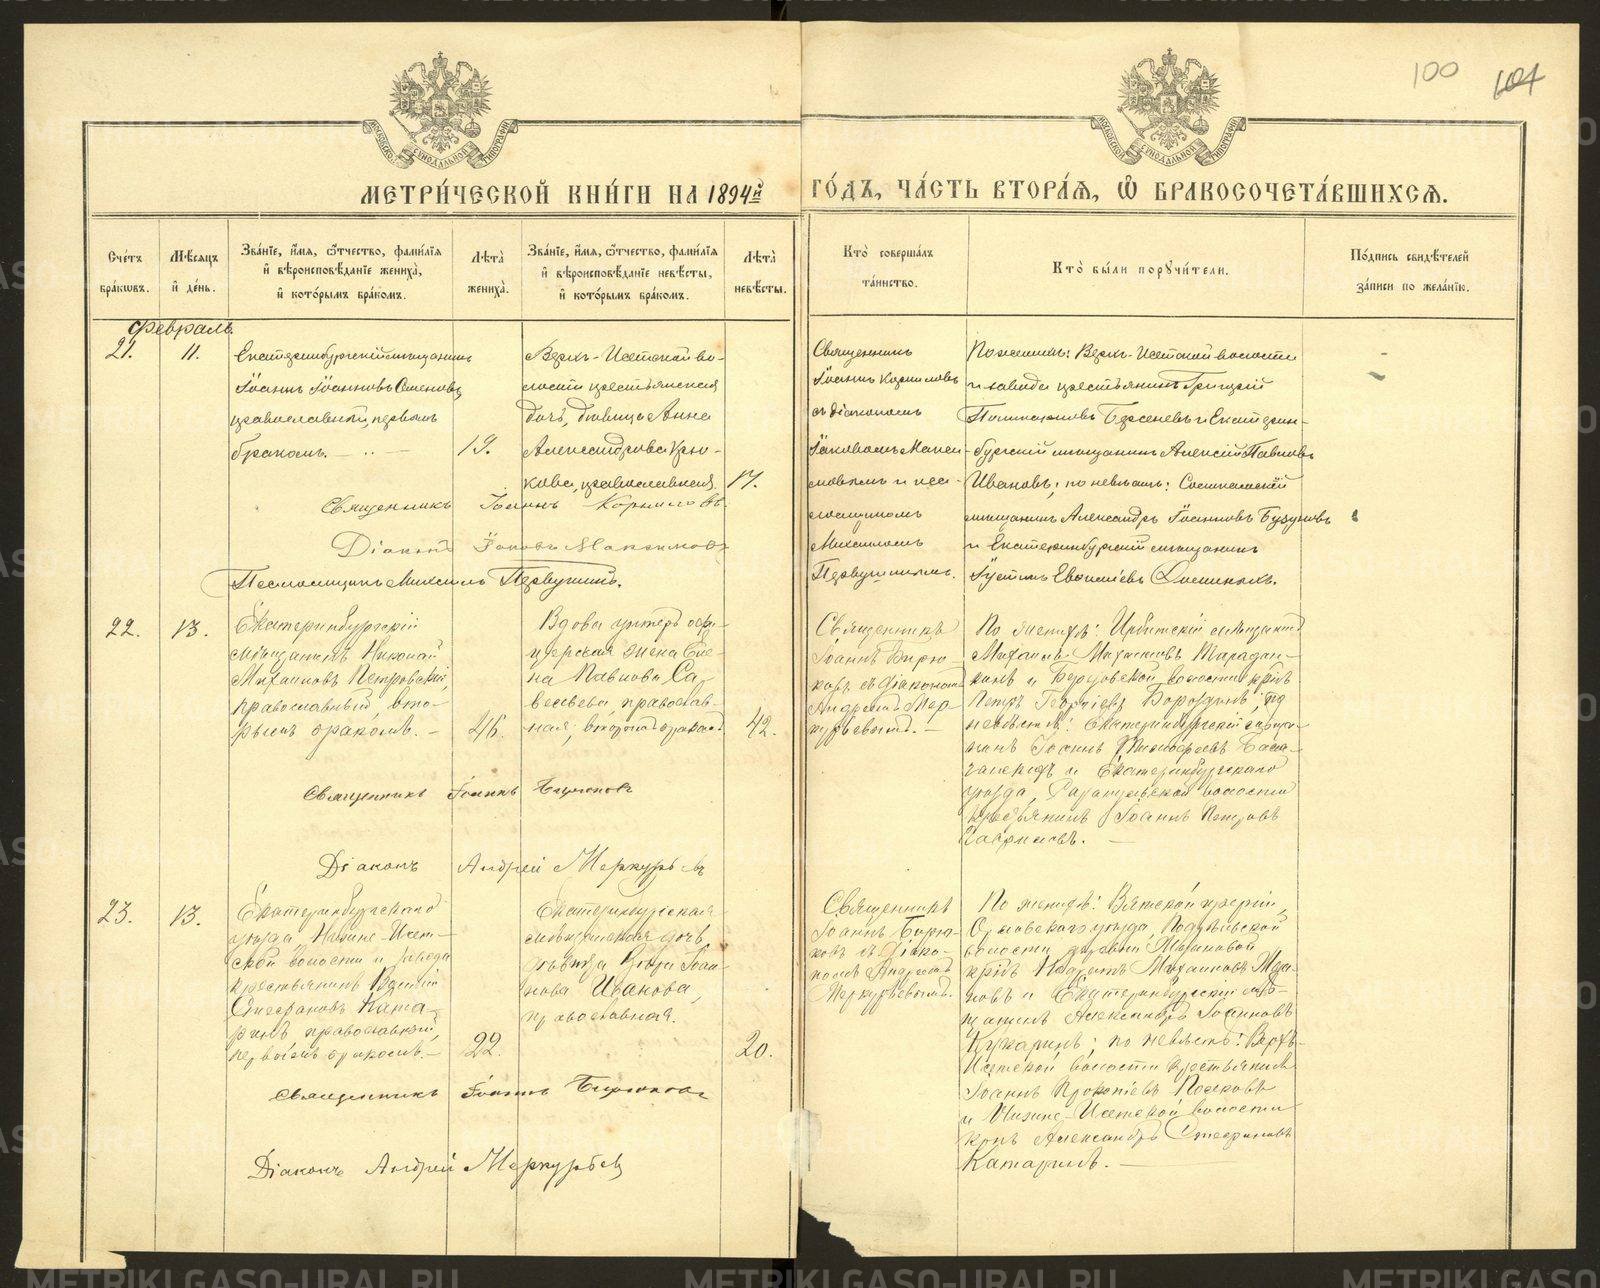 100 101
МЕТРИ́ЧЕСКОЙ КНИ́ГИ НА 1894й ГО́ДЪ, ЧА́СТЬ ВТОРА́Я, Ѿ БРАКОСОЧЕТА́ВШИХСЯ.
Сче́тъ бра́кωвъ.
Мѣ́сяцъ и҆ де́нь.
Зва́нїе, и҆́мя, ѻ҆́тчество, фами́лїя и҆ вѣроисповѣ́данїе жениха̀, и҆ кото́рымъ бра́комъ.
Лѣта̀ жениха̀.
Зва́нїе, и҆́мя, ѻ҆́тчество, фами́лїя и҆ вѣроисповѣ́данїе невѣ́сты, и҆ кото́рымъ бра́комъ.
Лѣта̀ невѣ́сты.
Кто̀ соверша́лъ та́инство.
Кто̀ бы́ли порꙋчи́тели.
По́дпись свидѣ́телей за́писи по жела́нїю.
Февраль
21.
11.
Екатеринбургскій мѣщанинъ
Іоаннъ Іоанновъ Семеновъ,
православный, первымъ
бракомъ.
19.
Верхъ-Исетской во-
лости крестьянская
дочь, дѣвица Анна
Александрова Крю-
кова, православная.
17.
Священникъ
Іоаннъ Корниловъ
съ діакономъ
Іаковомъ Макси-
мовымъ и пса-
ломщикомъ
Михаиломъ
Первушинымъ.
По женихѣ: Верхъ-Исетской волости
и завода крестьянинъ Григорій
Берсеневъ и Екатерин-
бургскій мѣщанинъ Алексѣй Павловъ
Ивановъ; по невѣстѣ:
мѣщанинъ Александръ Іоанновъ Бузуновъ
и Екатеринбургскій мѣщанинъ
Священникъ Іоаннъ Корниловъ.
Діаконъ Іаковъ Максимовъ
Псаломщикъ Михаилъ Первушинъ.
22.
13.
Екатеринбургскій
мѣщанинъ Николай
Михаиловъ Петровскій,
православный, вто-
рымъ бракомъ.
46.
Вдова унтеръ офи-
церская жена Еле-
на Павлова Са-
вельева, православ-
ная, вторымъ бракомъ
42.
Священникъ
Іоаннъ Бирю-
ковъ съ діакономъ
Андреемъ Мер-
курьевымъ.
По женихѣ: Ирбитскій мѣщанинъ
Михаилъ Михаиловъ
и волости крес.
Петръ Георгіевъ Бородинъ; по
невѣстѣ: Екатеринбургскій мѣща-
нинъ Іоаннъ
и Екатеринбургскаго
уѣзда, волости
крестьянинъ Іоаннъ Петровъ
Гавриловъ.
Священникъ Іоаннъ Бирюковъ
Діаконъ Андрей Меркурьевъ
23.
13.
Екатеринбургскаго
уѣзда, Нижне-Исет-
ской волости и завода
крестьянинъ Василій
Стефановъ Ката-
ринъ, православный,
первымъ бракомъ.
22.
Екатеринбургская
мѣщанская дочь,
дѣвица Іоан-
нова Иванова,
православная.
20.
Священникъ
Іоаннъ Бирю-
ковъ съ діако-
номъ Андреемъ
Меркурьевымъ.
По женихѣ: Вятской губерніи,
Орловскаго уѣзда,
волости, деревни
Михаиловъ
и Екатеринбургскій мѣ-
щанинъ Александръ Іоанновъ
Кукаринъ; по невѣстѣ: Верхъ-
Исетской волости крестьянинъ
Іоаннъ Прокопіевъ
и Нижне-Исетской волости
крнъ Александръ Стефановъ
Катаринъ.
Священникъ Іоаннъ Бирюковъ
Діаконъ Андрей Меркурьевъ
METRIKI.GASO-URAL.RU